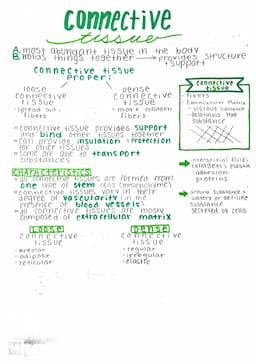 connective
tissue
A. most abundant tissue in the body
B. holds things together → provides structure
+ support
connective tissue
proper:
loose
connective
tissue
- spread out
fibers
dense
connective
tissue
- more collagen
fibers
- connective tissue provides support
and bind other tissues together
- can provide insulation + protection
for other tissues
- some are able to transport
substances
connective tissue
- fibers
- Extracellular Matrix
- viscous substance
substance
→ interstitial fluids
adhesion
proteins
→ ground substance =
watery or gel-like
substance
secreted by cells
CHARACTERISTICS
- all connective tissues are formed from
one type of stem cells (mesenchyme)
- connective tissues vary in their
degree of vascularity (in the
presence of blood vessels)
- all connective tissues are mostly
composed of extracellular matrix
LOOSE
connective
tissue
- areolar
- adipose
- reticular
DENSE
connective
tissue
- regular
- irregular
- elastic